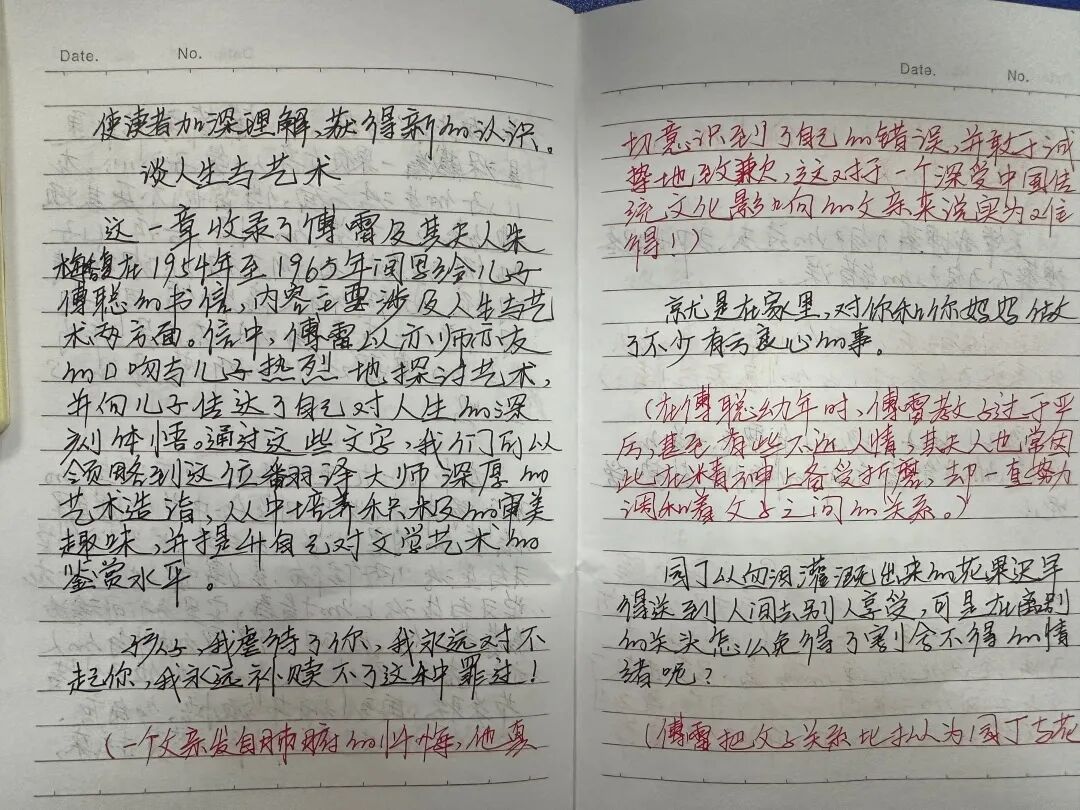 Date. No.
使读者加深理解、获得新的认识。
谈人生与艺术
这一章收录了傅雷及其夫人朱
梅馥在1954年至1965年间写给儿子
傅聪的书信,内容主要涉及人生与艺
术两方面。信中,傅雷以亦师亦友
的口吻与儿子热烈地探讨艺术,
并向儿子传达了自己对人生的深
刻体悟。通过这些文字,我们可以
领略到这位翻译大师深厚的
艺术造诣,从中培养积极的审美
趣味,并提升自己对文学艺术的
鉴赏水平。
孩子,我虐待了你,我永远对不
起你,我永远补赎不了这种罪过!
(一个父亲发自肺腑的忏悔,他真
Date. No.
切意识到了自己的错误,并敢于诚
挚地致歉,这对于一个深受中国传
统文化影响的父亲来说实为难
得!)
尤是在家里,对你和你妈妈做
了不少有亏良心的事。
(在傅聪幼年时,傅雷教子过于严
厉,甚至有些不近人情,其夫人也常因
此在精神上备受折磨,却一直努力
调和着父子之间的关系。)
园丁以血泪灌溉出来的花果迟早
得送到人间去别人享受,可是在离别
的关头怎么免得了割舍不得的情
绪呢?
(傅雷把父子关系比拟为园丁与花